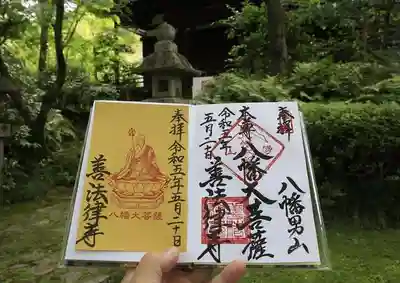 奉拝
八幡男山
本尊 八幡大菩薩
令和五年
五月二十日
善法律寺
奉拝 令和五年五月二十日
八幡大菩薩
善法律寺